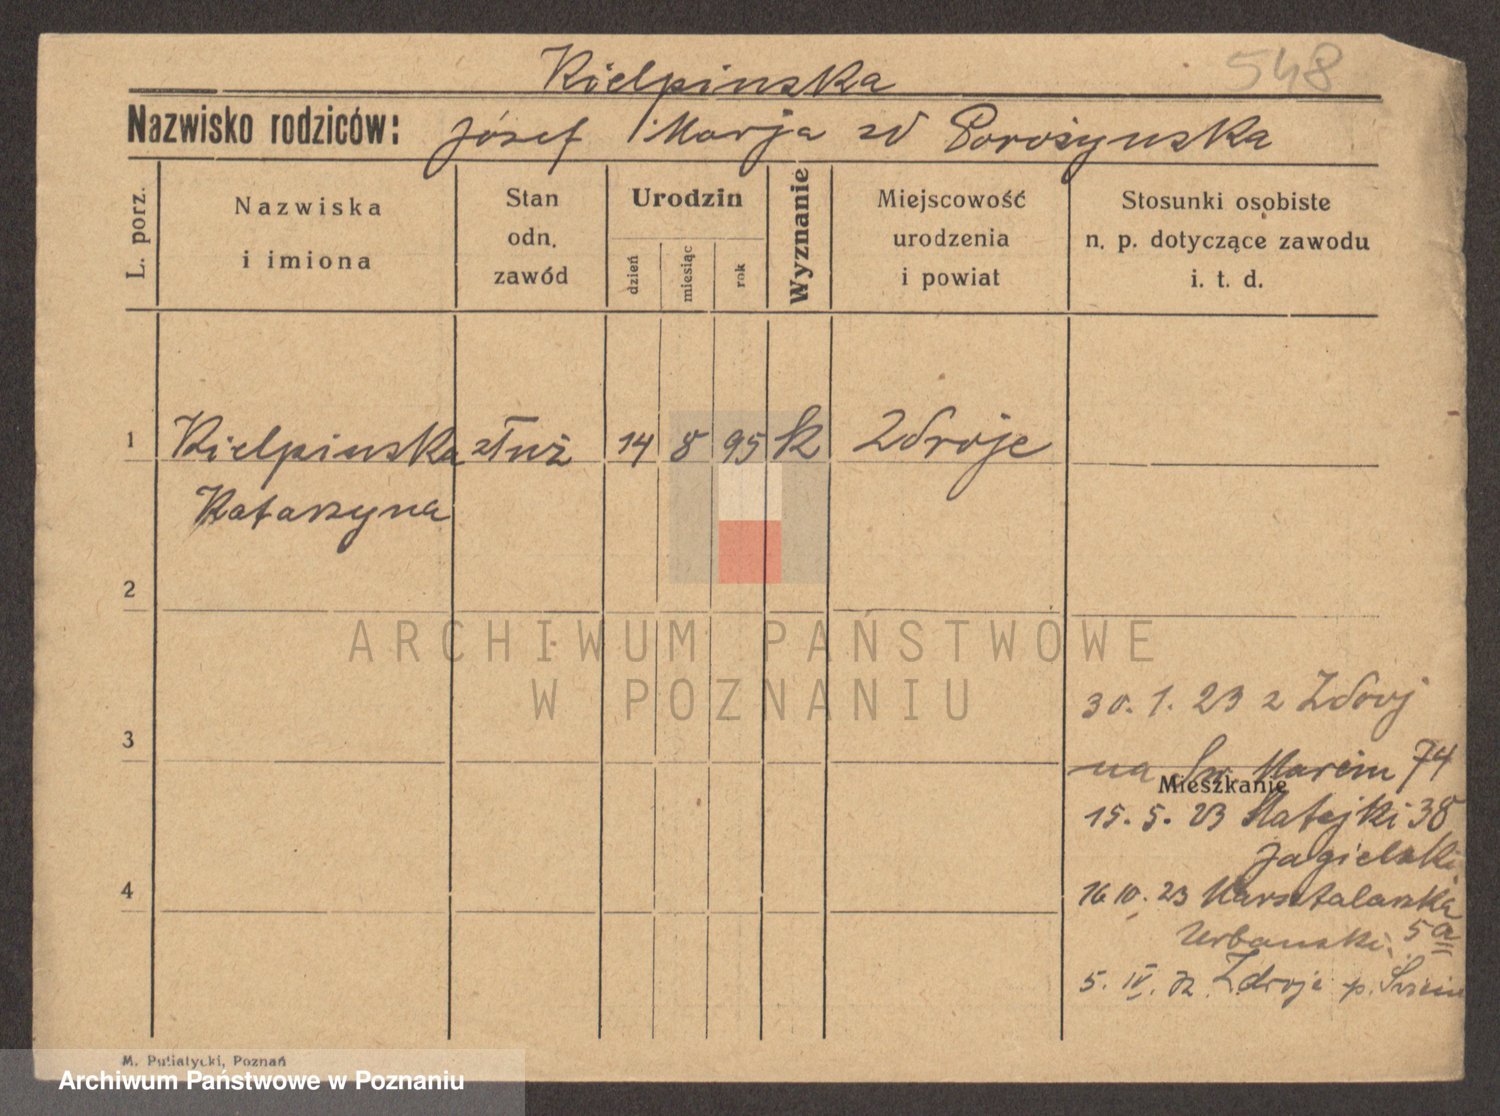 548
Kielpinska
Nazwisko rodziców: Józef Marja zd Porożynska
L. porz.
Nazwiska
i imiona
Stan
odn.
zawód
Urodzin
dzień
miesiąc
rok
Wyznanie
Miejscowość
urodzenia
i powiat
Stosunki osobiste
n. p. dotyczące zawodu
i. t. d.
1 Kielpinska służ 14 8 95 k Zdroje
Katarzyna
2
ARCHIWUM PAŃSTWOWE
W POZNANIU
30. 1. 23 z Zdroj
3
na Św. Marcin 74
Mieszkanie
15. 5. 23 Matejki 38
Jagielski
4
16 10. 23 Masztalarska
Urbanski 5a
5. IV. Zdroje p.
M. Putiatycki, Poznań
Archiwum Państwowe w Poznaniu